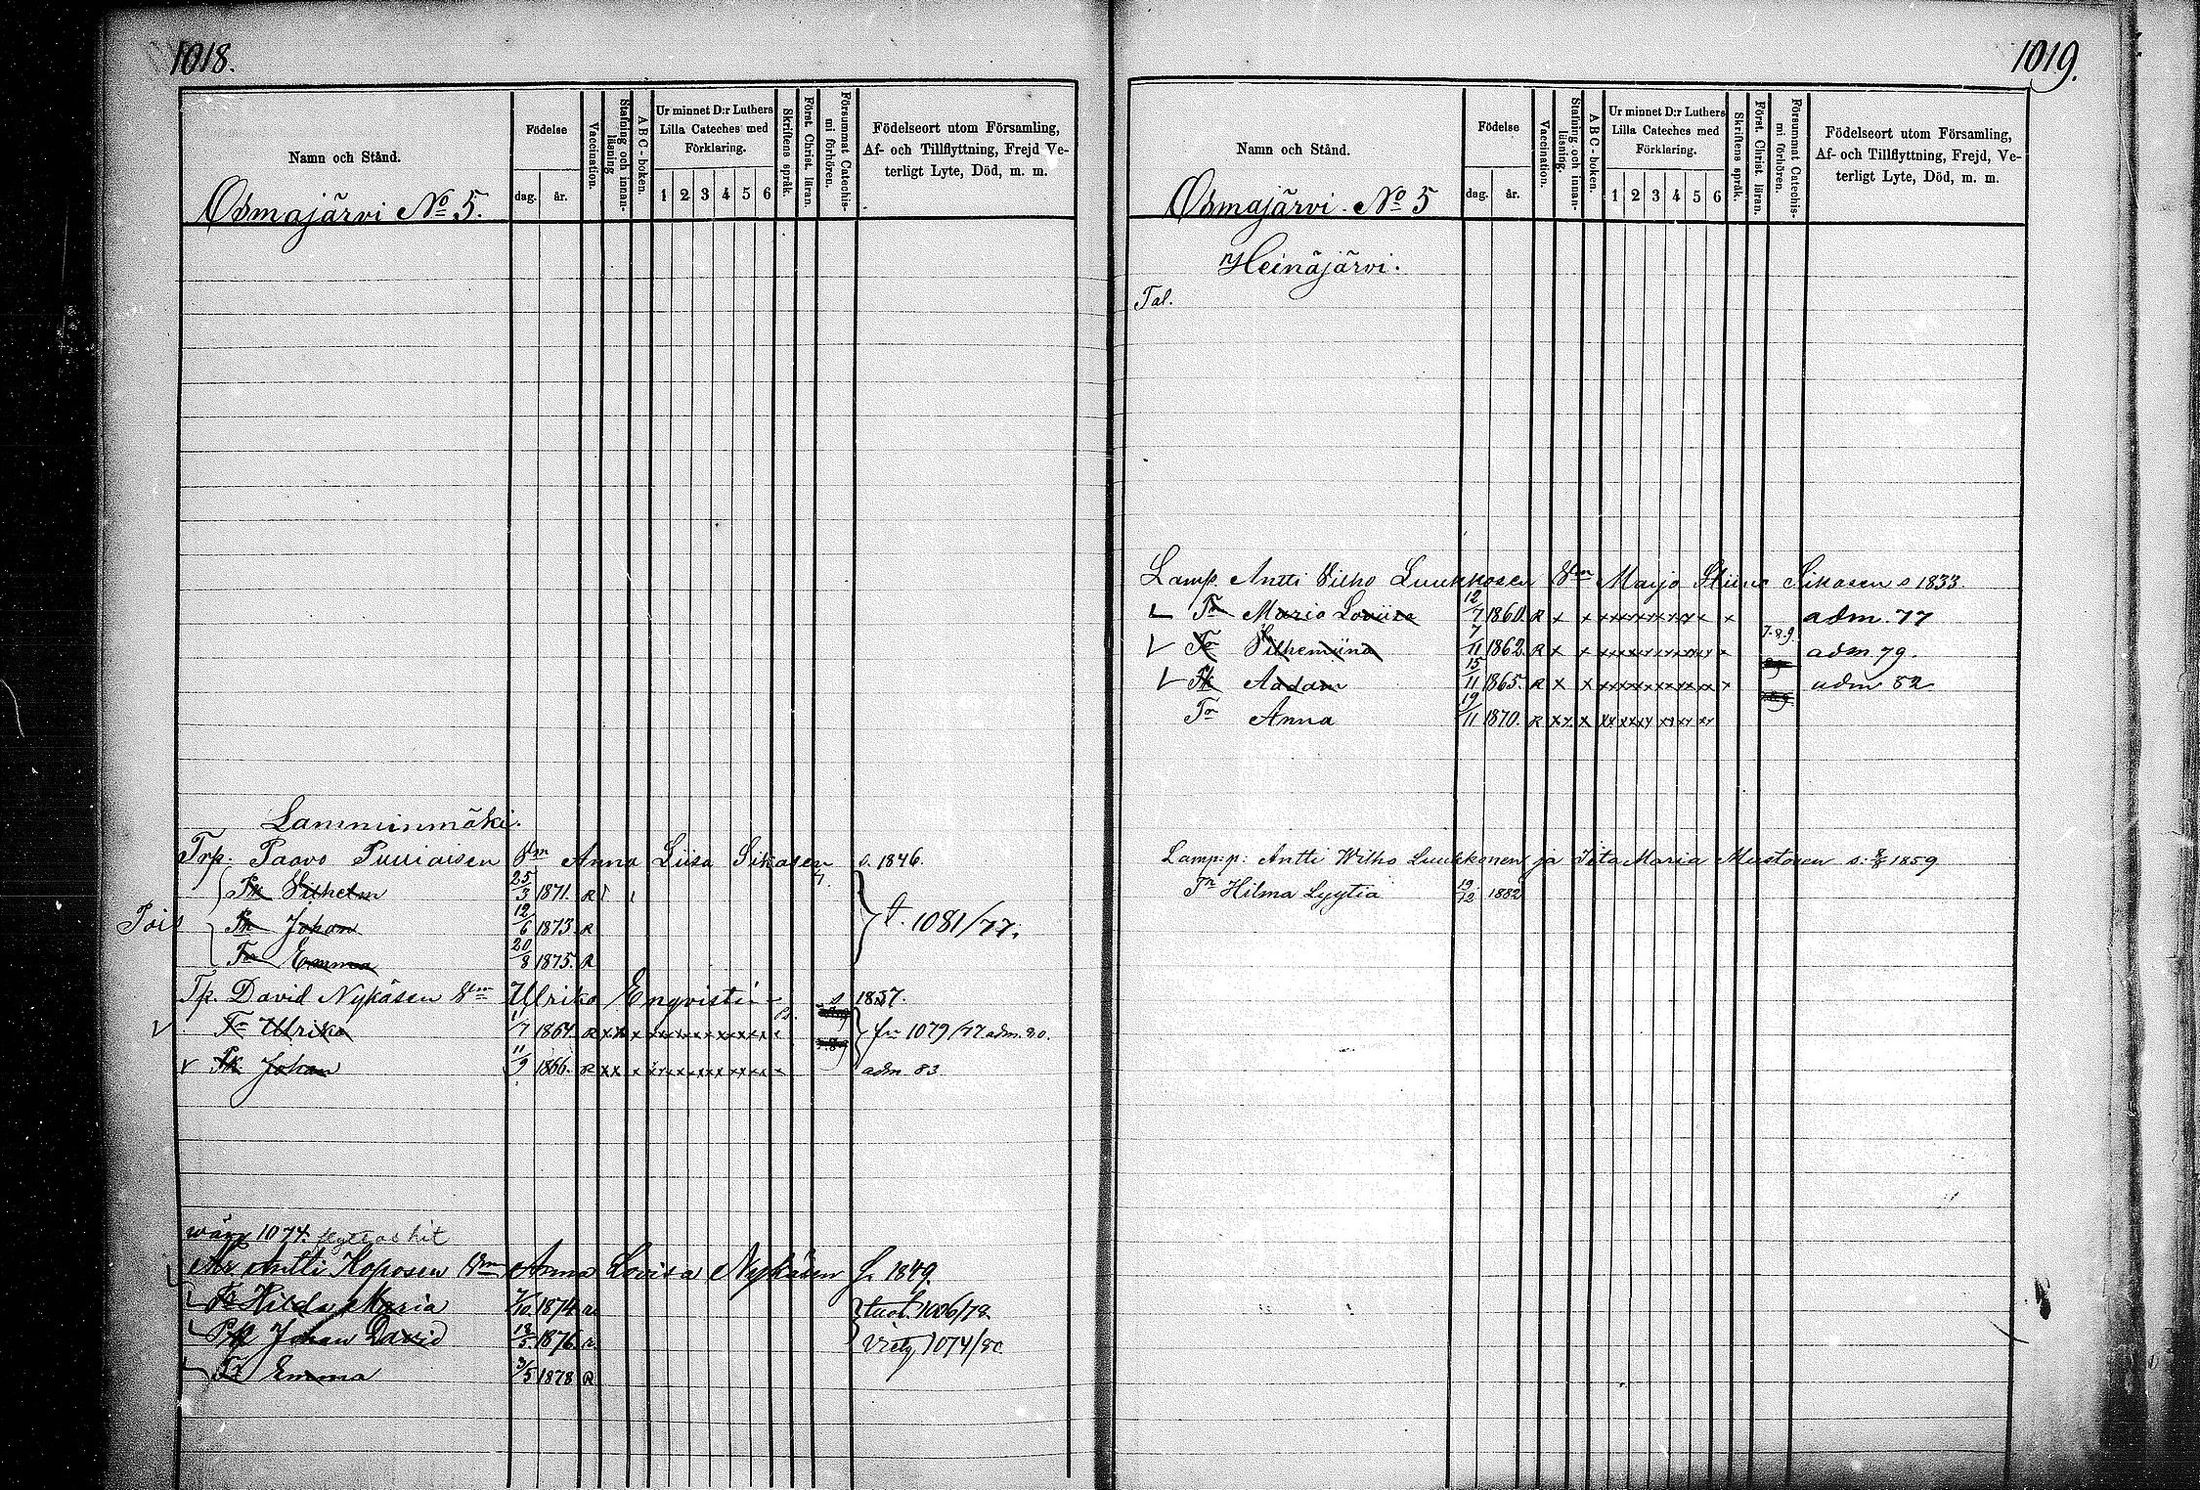 1018.
Namn och Stånd.
Födelse
dag. år.
Vaccination.
Stafning och innan-läsning
A B C - boken.
Ur minnet D:r Luthers
Lilla Cateches med
Förklaring.
1 2 3 4 5 6
Skriftens språk.
Först. Christ. läran.
Försummat Catechis-
mi förhören.
Födelseort utom Församling,
Af- och Tillflyttning, Frejd Ve-
terligt Lyte, Död, m. m.
Osmajärvi No 5.
Lamminmäki.
Trp. Paavo Anna Liisa Sikasen s. 1846.
Pk Vilhelm 25/3 1871. R
Pois
Pk Johan 12/6 1873. R
Tr Emma 20/8 1875. R
t. 1081/77.
Tp. David Nykäsen Vm Ulrika Enqvisti s 1837.
Tr Ulrika 1/7 1864. R fr 1079/77 adm. 80.
Pk Johan 11/9 1866. R adm 83.
1074. flyttas hit
Antti Koposen Vm Anna Lovisa Nykäsen f. 1849.
Tr Hilda Maria 7/10 1874 tuol. 1006/78
Pk Johan David 18/5 1876. 1074/80
Tr Emma 3/5 1878 R
1019.
Namn och Stånd.
Födelse
dag. år.
Vaccination.
Stafning och innan-läsning
A B C - boken.
Ur minnet D:r Luthers
Lilla Cateches med
Förklaring.
1 2 3 4 5 6
Skriftens språk.
Först. Christ. läran.
Försummat Catechis-
mi förhören.
Födelseort utom Församling,
Af- och Tillflyttning, Frejd, Ve-
terligt Lyte, Död, m. m.
Osmajärvi. No 5
Heinäjärvi.
Tal.
Lamp. Antti Vilho Luukkosen Vm Marja Stiina Sikasen s 1833.
Tr Maria Loviisa 12/7 1860. R adm. 77
Tr Vilhemiina 7/11 1862. R 7.8.9. adm 79.
Pk Aadam 15/11 1865. R adm 82
Tr Anna 19/11 1870. R
Lamp:p: Antti Wilho Luukkonen ja Iita Maria Mustonen s: 1859
Tr Hilma Lyytia 19/12 1882